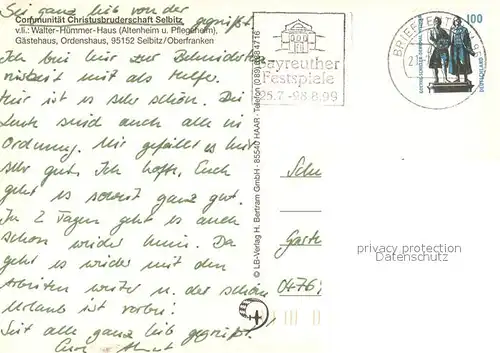 Seid ganz lieb von der gegrüßt!
Communität Christusbruderschaft Selbitz
v.li.: Walter-Hümmer-Haus (Altenheim u. Pflegeheim),
Gästehaus, Ordenshaus, 95152 Selbitz/Oberfranken
Ich bin hier zur
mit als Helfer.
Hier ist es sehr schön. Die
Leute sind auch alle in
Ordnung. Mir gefällt es hier
sehr gut. Ich hoffe, Euch
geht es soweit ganz gut.
In 2 Tagen geht es auch
schon wieder heim. Da
geht es wieder mit den
Arbeiten weiter u. der schöne
Urlaub ist vorbei.
Seid alle ganz lieb gegrüßt!
Eure
© LB-Verlag H. Bertram GmbH - 85540 HAAR - Telefon (089)
Bayreuther
Festspiele
25.7.-28.8.99
BRIEFZENTRUM 95
100
DEUTSCHLAND
Garten
0476
privacy protection
Datenschutz